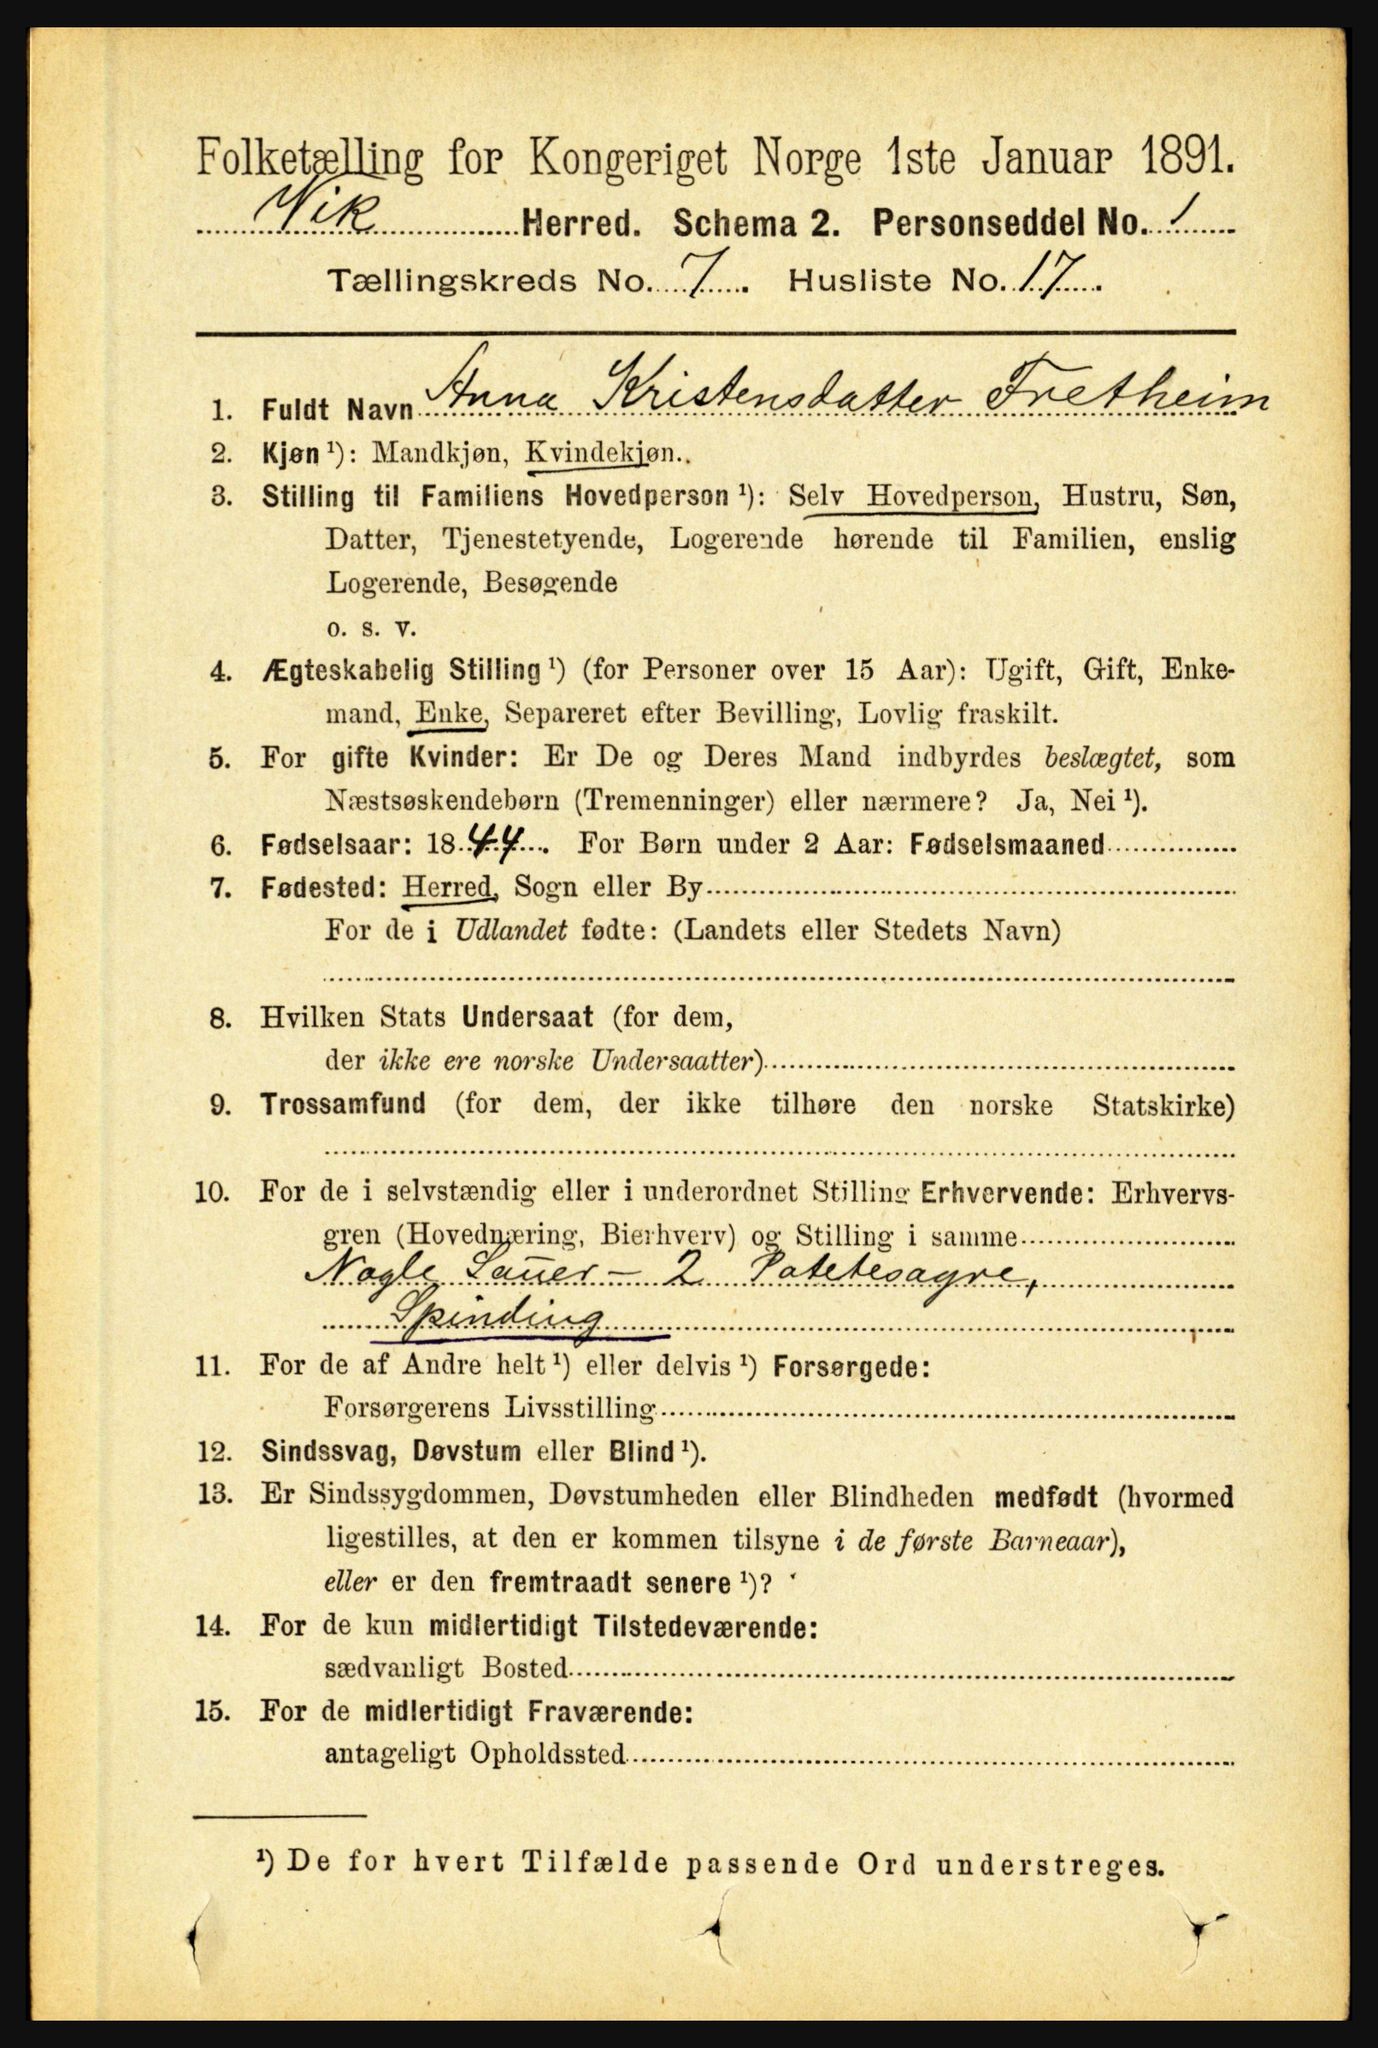 Folketælling for Kongeriget Norge 1ste Januar 1891.
Vik Herred. Schema 2. Personseddel No. 1
Tællingskreds No. 7. Husliste No. 17.
1. Fuldt Navn Anna Kristensdatter Fretheim
2. Kjøn ¹): Mandkjøn, Kvindekjøn.
3. Stilling til Familiens Hovedperson ¹): Selv Hovedperson, Hustru, Søn,
Datter, Tjenestetyende, Logerende hørende til Familien, enslig
Logerende, Besøgende
o. s. v.
4. Ægteskabelig Stilling ¹) (for Personer over 15 Aar): Ugift, Gift, Enke-
mand, Enke, Separeret efter Bevilling, Lovlig fraskilt.
5. For gifte Kvinder: Er De og Deres Mand indbyrdes beslægtet, som
Næstsøskendebørn (Tremenninger) eller nærmere? Ja, Nei ¹).
6. Fødselsaar: 1844. For Børn under 2 Aar: Fødselsmaaned
7. Fødested: Herred, Sogn eller By
For de i Udlandet fødte: (Landets eller Stedets Navn)
8. Hvilken Stats Undersaat (for dem,
der ikke ere norske Undersaatter)
9. Trossamfund (for dem, der ikke tilhøre den norske Statskirke)
10. For de i selvstændig eller i underordnet Stilling Erhvervende: Erhvervs-
gren (Hovednæring, Bierhverv) og Stilling i samme
Nogle Sauer - 2 Potetesagre,
Spinding
11. For de af Andre helt ¹) eller delvis ¹) Forsørgede:
Forsørgerens Livsstilling
12. Sindssvag, Døvstum eller Blind ¹).
13. Er Sindssygdommen, Døvstumheden eller Blindheden medfødt (hvormed
ligestilles, at den er kommen tilsyne i de første Barneaar),
eller er den fremtraadt senere ¹)?
14. For de kun midlertidigt Tilstedeværende:
sædvanligt Bosted
15. For de midlertidigt Fraværende:
antageligt Opholdssted
¹) De for hvert Tilfælde passende Ord understreges.